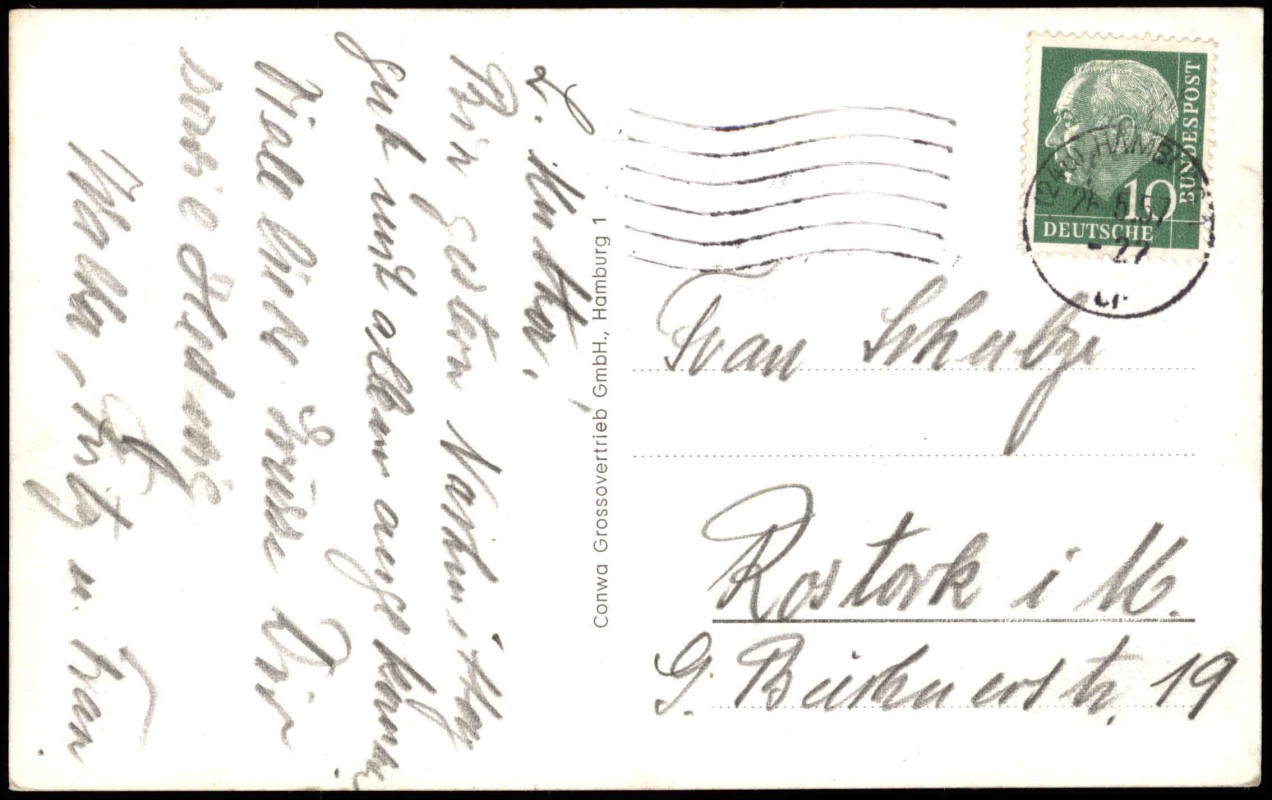 L. Mutter!
Bin gestern Nachmittag
gut und allem angekommen
Viele liebe Grüsse Dir
Walter, Fritz u. Frau
Conwa Grossovertrieb GmbH., Hamburg 1
BUNDESPOST
10
DEUTSCHE
HAMBURG
5.57
-22
Frau Schulze
Rostock i M.
G. Büchnerstr. 19